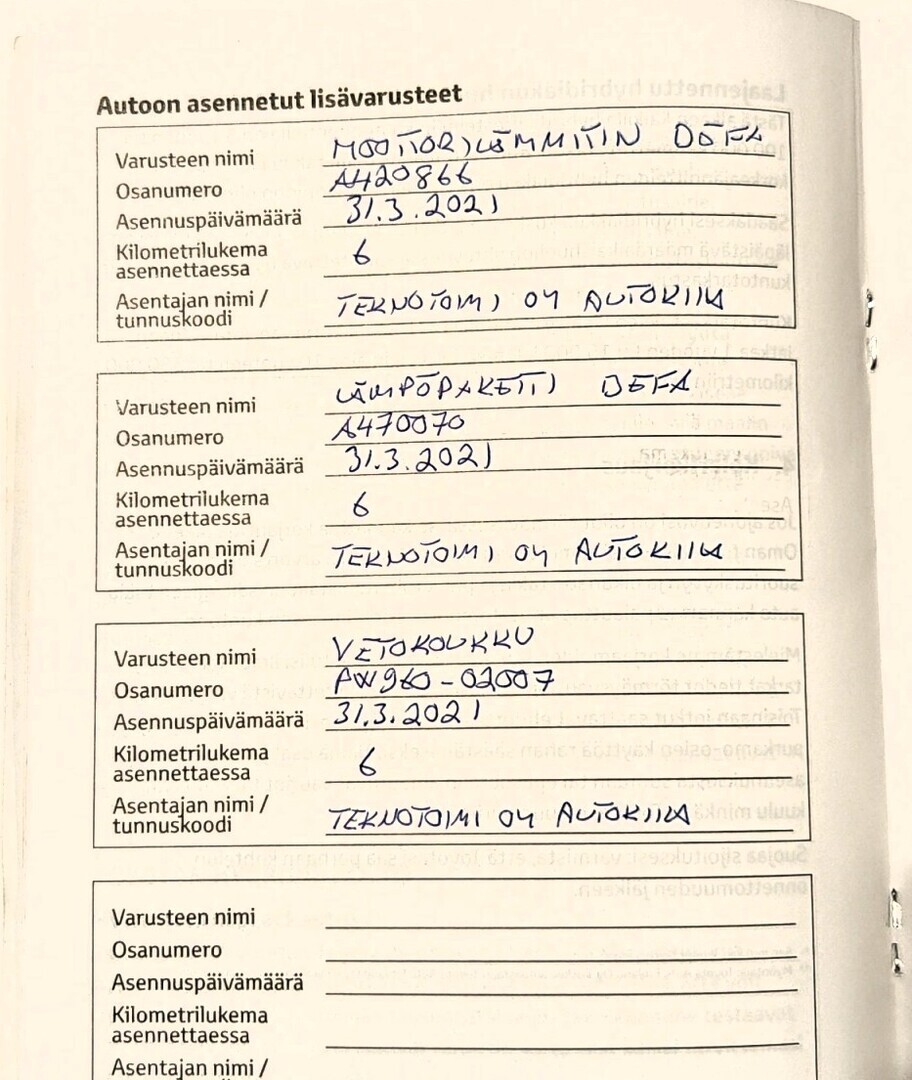 Autoon asennetut lisävarusteet
Varusteen nimi MOOTTORILÄMMITIN DEFA
Osanumero A420866
Asennuspäivämäärä 31.3.2021
Kilometrilukema
asennettaessa 6
Asentajan nimi / TEKNOTOIMI OY AUTOKIILA
tunnuskoodi
Varusteen nimi LÄMPÖPAKETTI DEFA
Osanumero A470070
Asennuspäivämäärä 31.3.2021
Kilometrilukema
asennettaessa 6
Asentajan nimi / TEKNOTOIMI OY AUTOKIILA
tunnuskoodi
Varusteen nimi VETOKOUKKU
Osanumero PW960-02007
Asennuspäivämäärä 31.3.2021
Kilometrilukema
asennettaessa 6
Asentajan nimi / TEKNOTOIMI OY AUTOKIILA
tunnuskoodi
Varusteen nimi
Osanumero
Asennuspäivämäärä
Kilometrilukema
asennettaessa
Asentajan nimi /